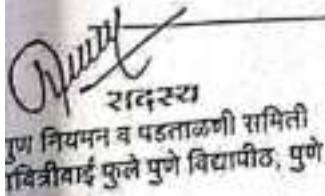 सदस्य
ुण नियमन व पडताळणी समिती
ावित्रीबाई फुले पुणे विद्यापीठ, पुणे